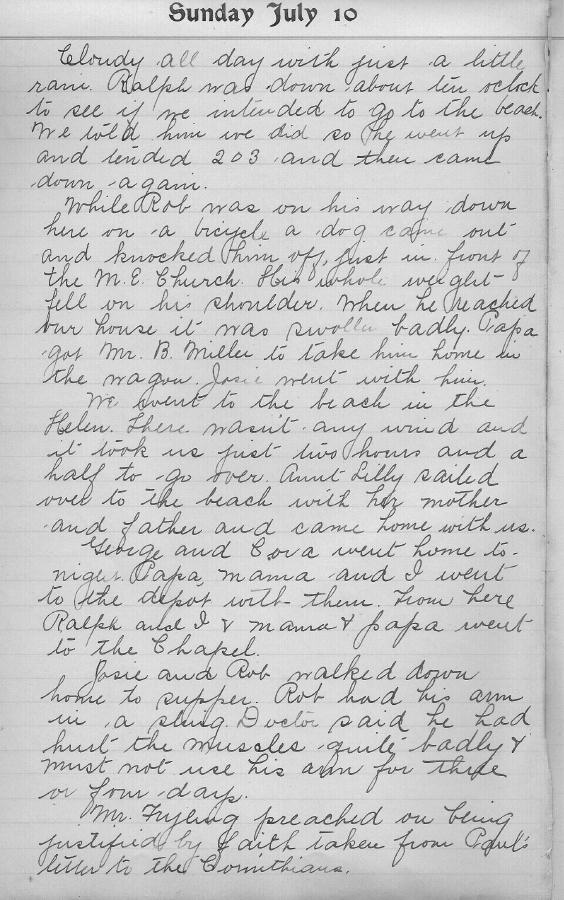 Sunday July 10
Cloudy all day with just a little
rain. Ralph was down about ten oclock
to see if we intended to go to the beach.
We told him we did so he went up
and tended 203 and then came
down again.
While Rob was on his way down
here on a bicycle a dog came out
and knocked him off, just in front of
the M.E. Church. His whole weight
fell on his shoulder. When he reached
our house it was swollen badly. Papa
got Mr. B. Miller to take him home in
the wagon. Josie went with him.
We went to the beach in the
Helen. There wasn't any wind and
it took us just two hours and a
half to go over. Aunt Lilly sailed
over to the beach with her mother
and father and came home with us.
George and Cora went home to-
night. Papa, mama and I went
to the depot with them. From here
Ralph and I & mama & papa went
to the Chapel.
Josie and Rob walked down
home to supper. Rob had his arm
in a sling. Doctor said he had
hurt the muscles quite badly &
must not use his arm for three
or four days.
Mr. Fryling preached on being
justified by faith taken from Paul's
letter to the Corinthians.